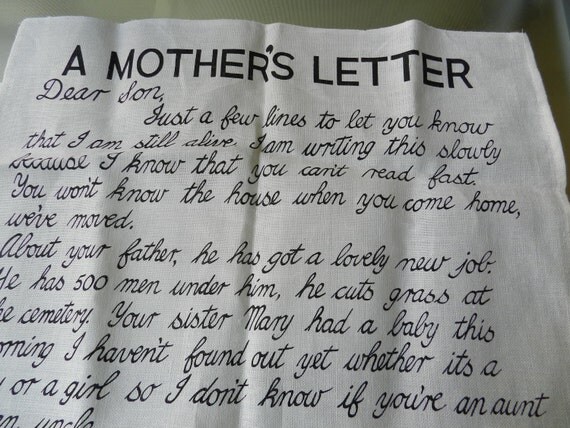 A MOTHER'S LETTER
Dear Son,
Just a few lines to let you know
that I am still alive. I am writing this slowly
because I know that you can't read fast.
You won't know the house when you come home,
we've moved.
About your father, he has got a lovely new job.
He has 500 men under him, he cuts grass at
he cemetery. Your sister Mary had a baby this
orning I haven't found out yet whether its a
y or a girl so I don't know if you're an aunt
uncle